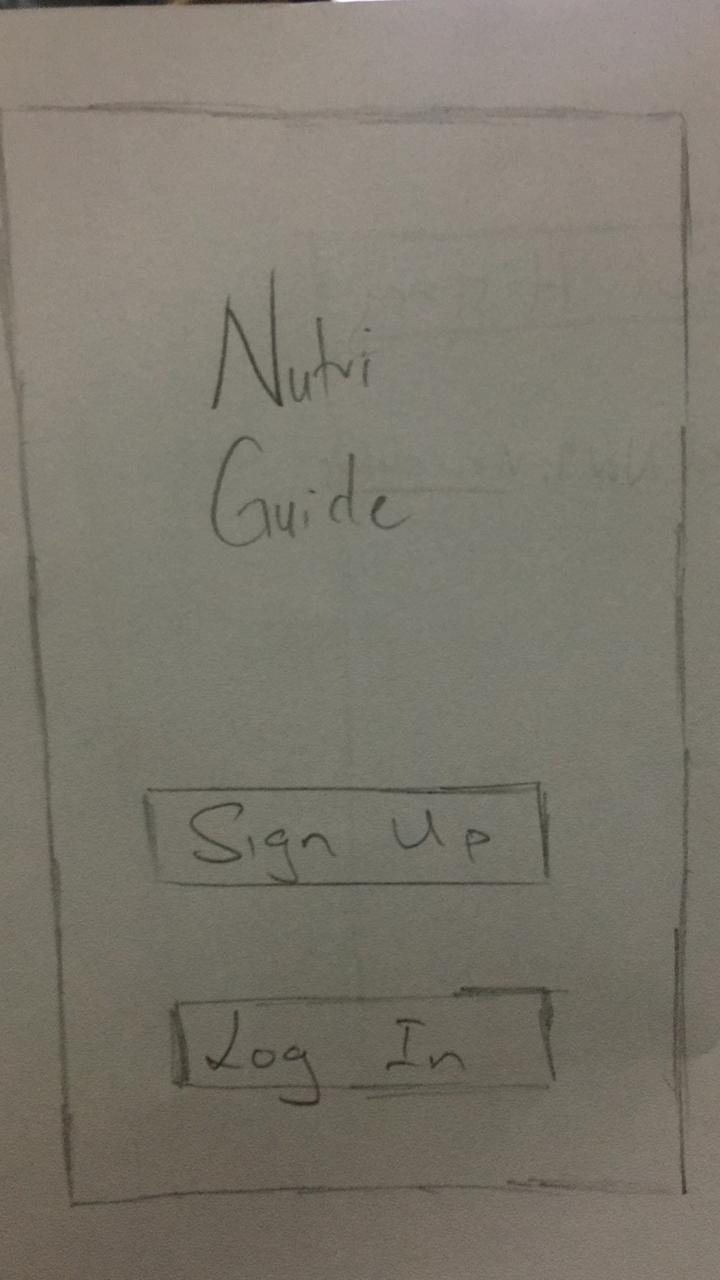 Nutri
Guide
Sign Up
Log In